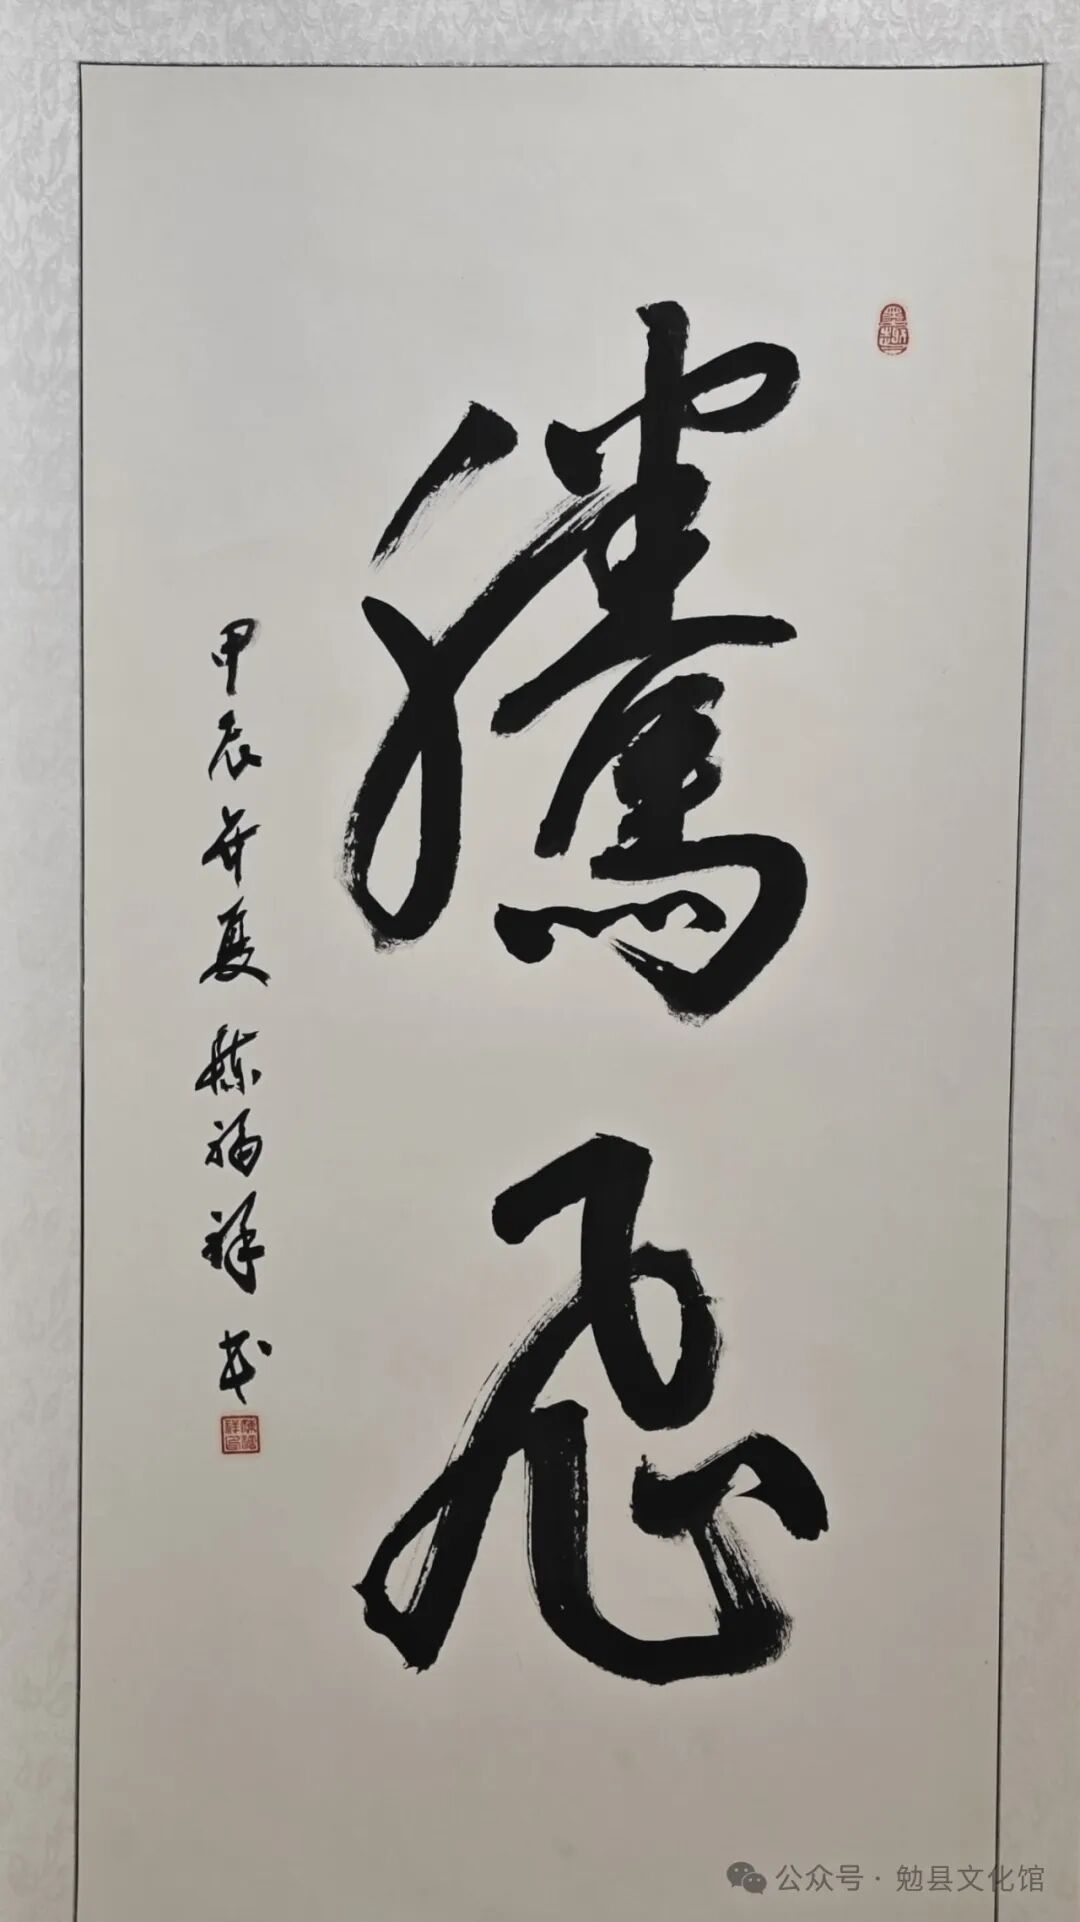 騰飛
甲辰年夏 陳福祥书
公众号·勉县文化馆